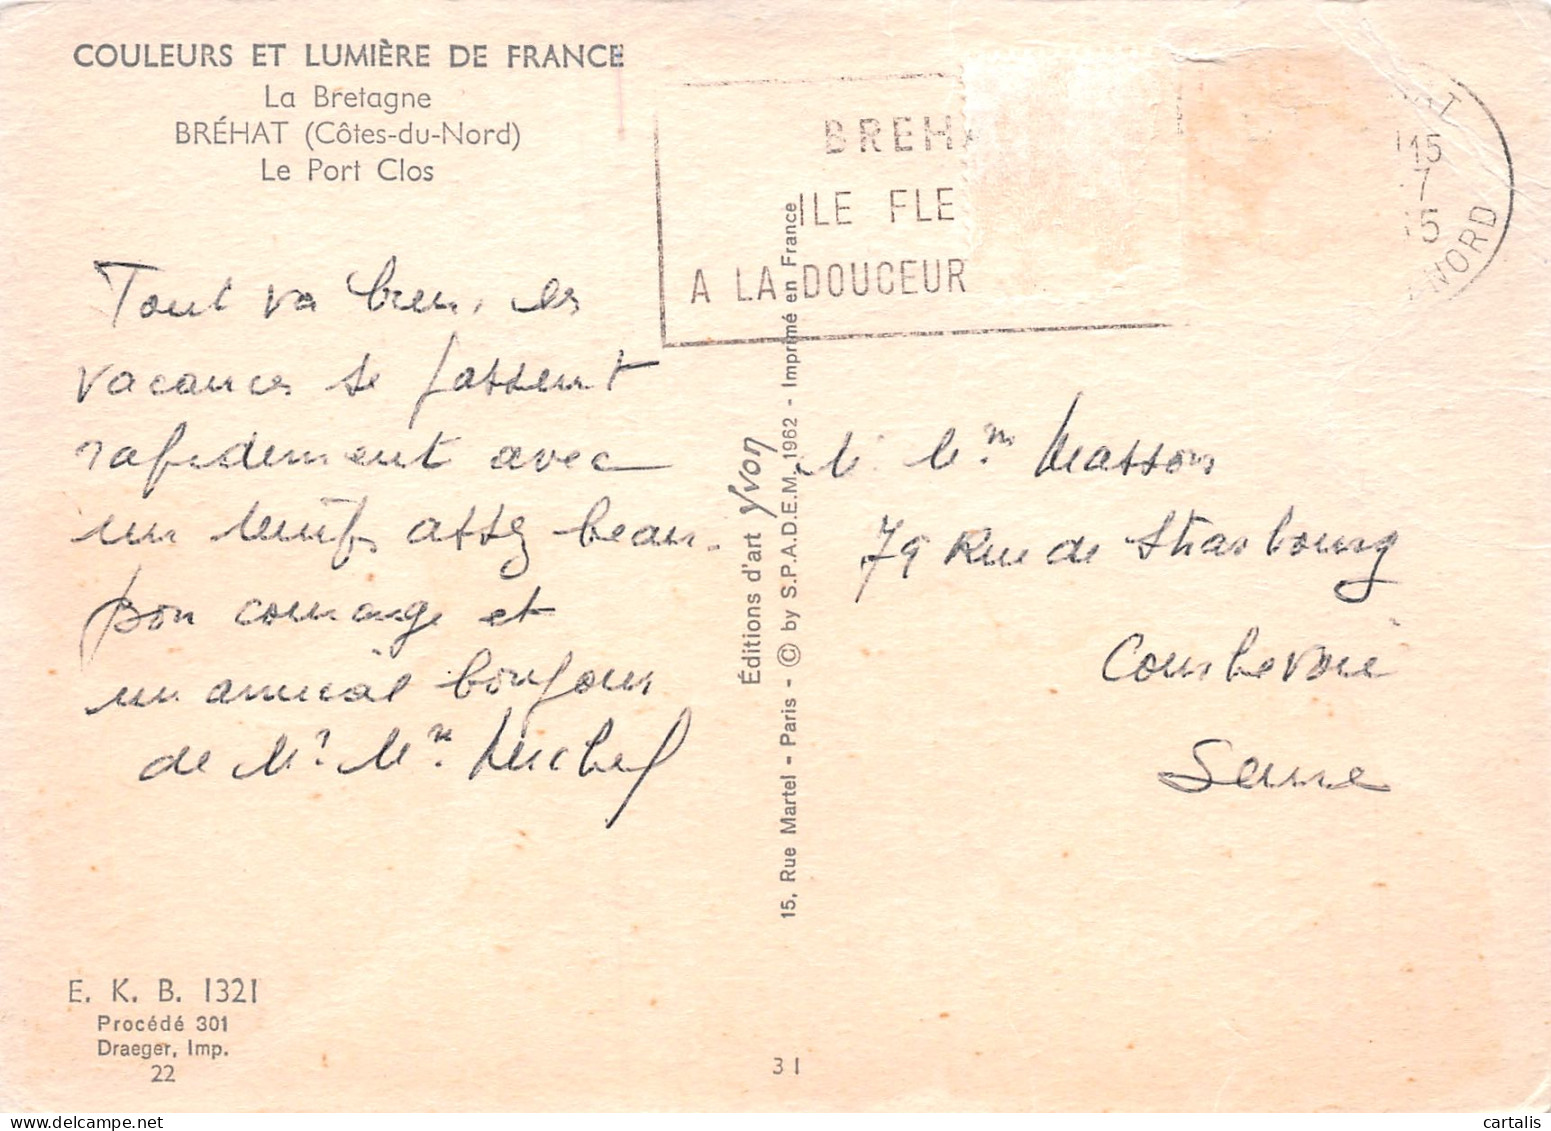 COULEURS ET LUMIÈRE DE FRANCE
La Bretagne
BRÉHAT (Côtes-du-Nord)
Le Port Clos
BREHA
ILE FLE
A LA DOUCEUR
AT
15
7
NORD
Tout va bien, les
vacances se passent
rapidement avec
un temps assez beau.
bon courage et
un amical bonjour
de Mr Me Michel
M. Mme Masson
79 Rue de Strasbourg
Courbevoie
Seine
Éditions d'art Yvon
15, Rue Martel - Paris - © by S.P.A.D.E.M. 1962 - Imprimé en France
E. K. B. 1321
Procédé 301
Draeger, Imp.
22
31
cartalis